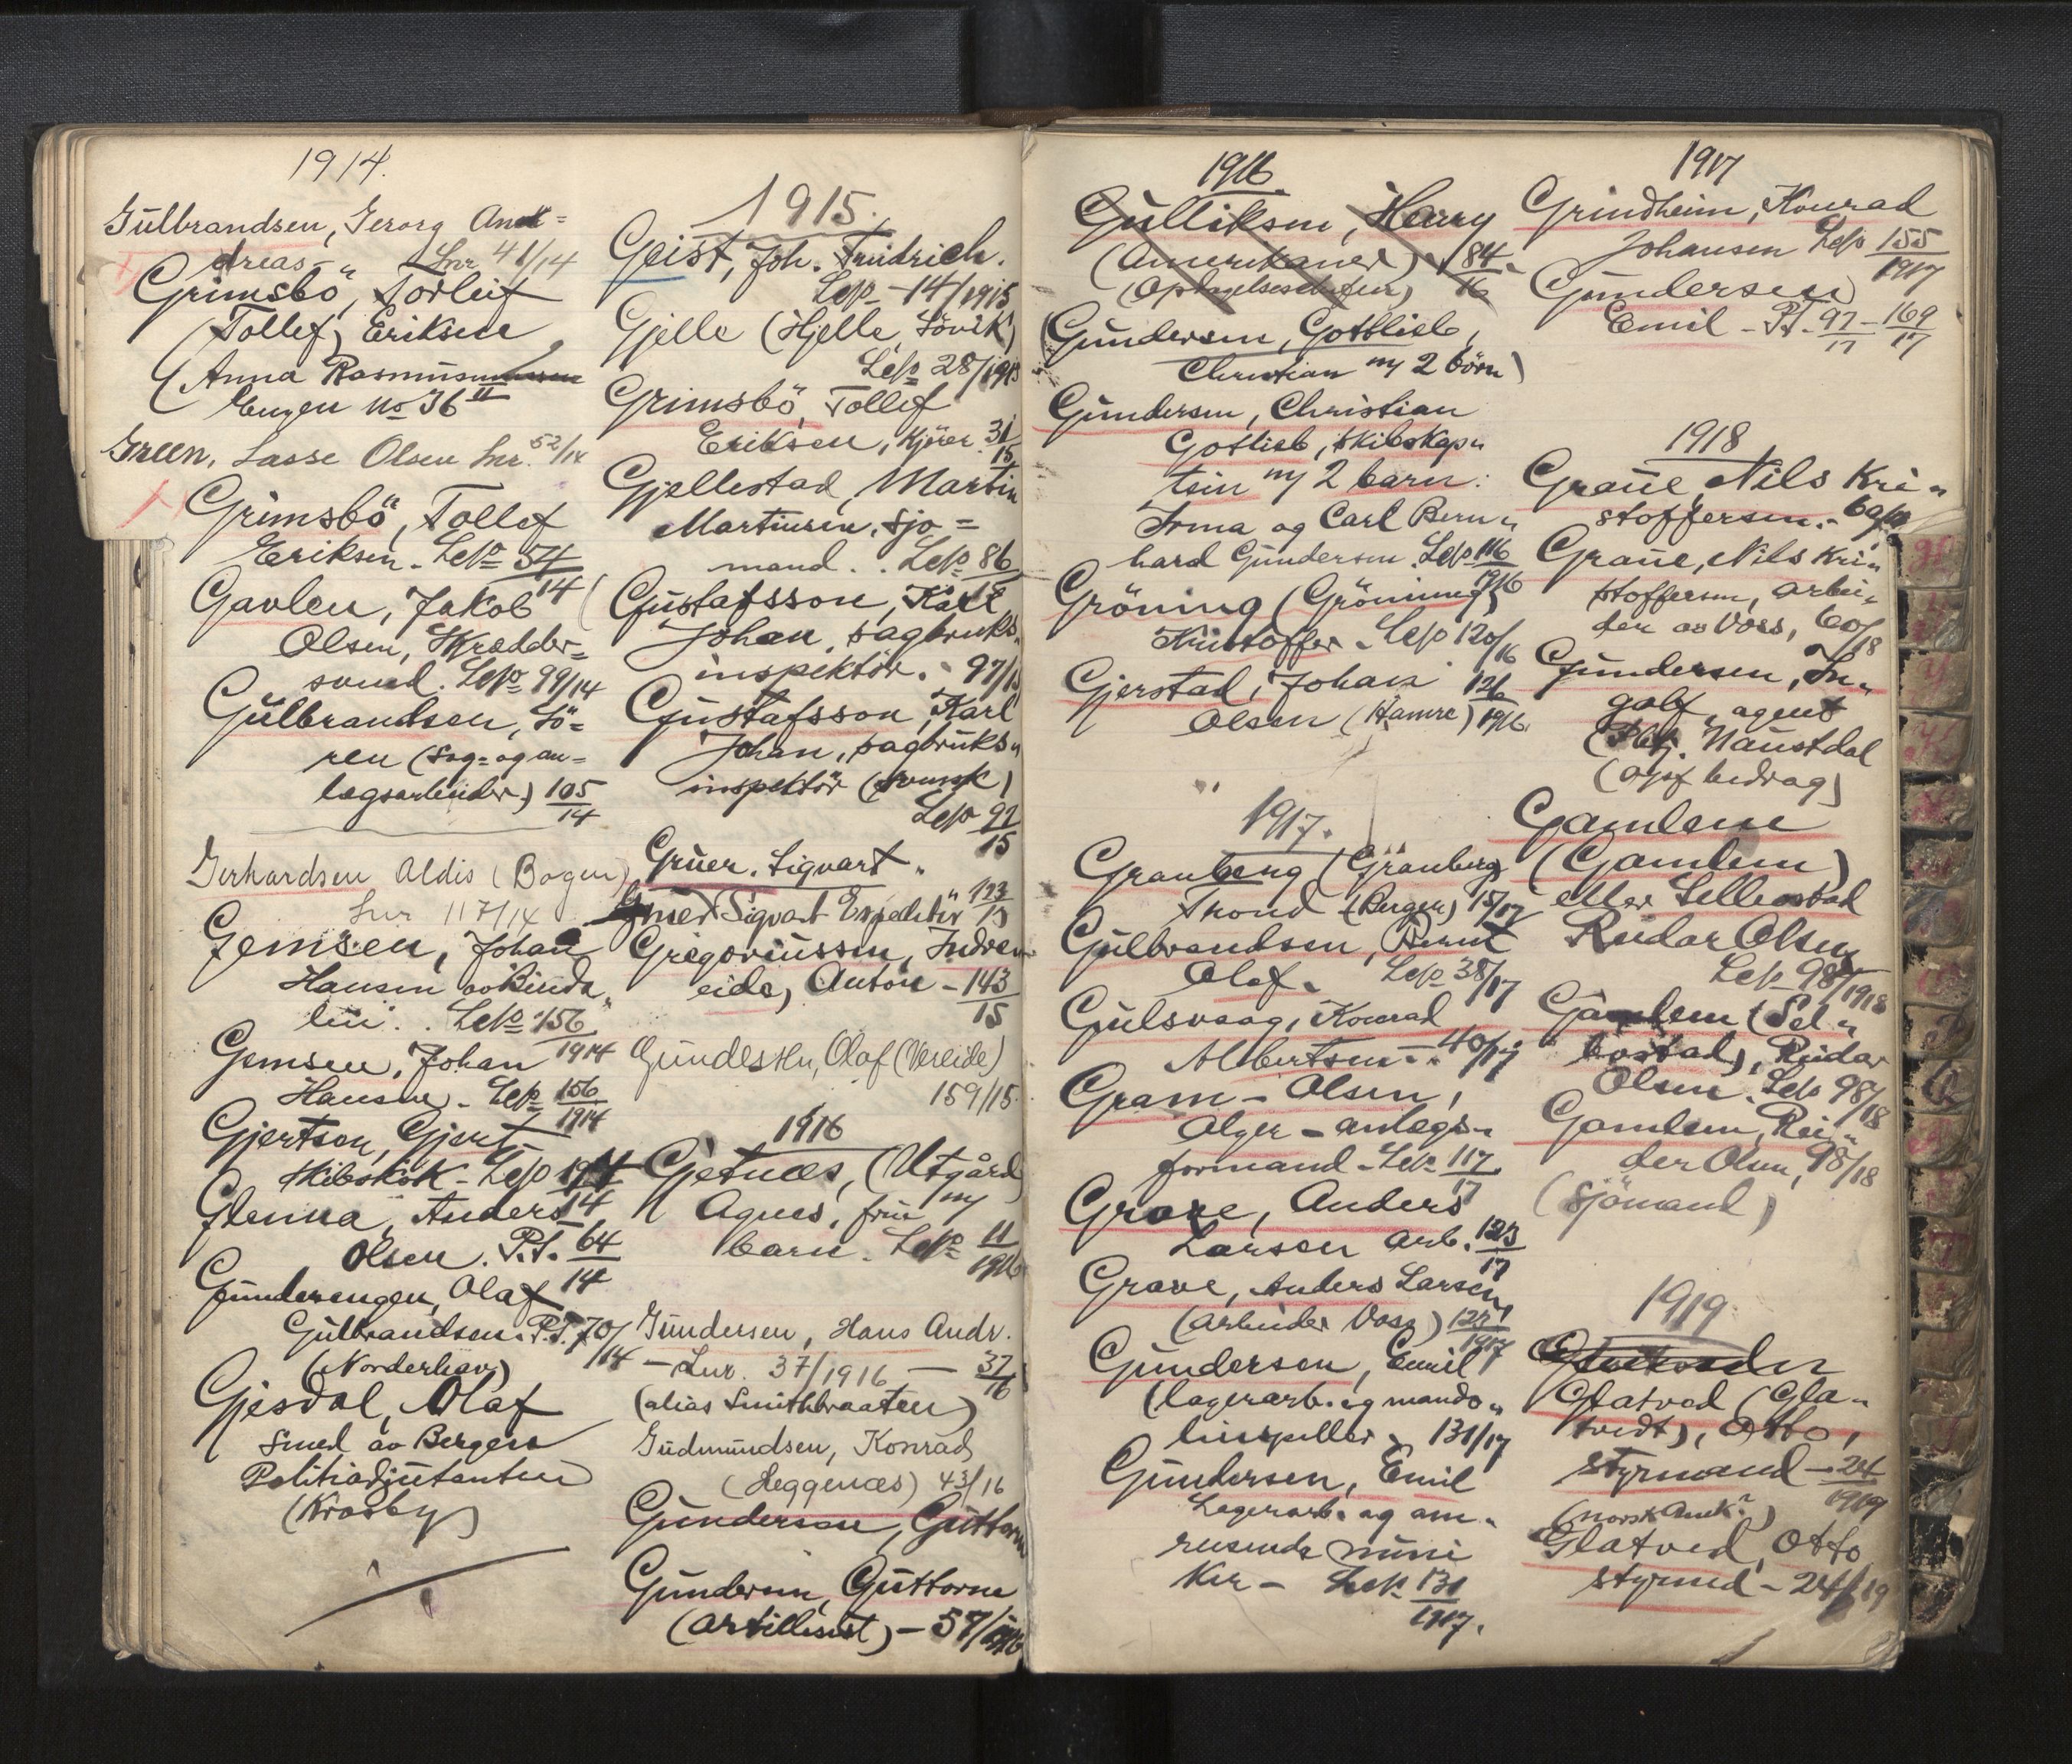 1914.
Gulbrandsen, Gerorg An
dreas - " Lnr 41/14
Grimsbö, Torleif
(Tollef) Eriksen
(Anna Rasmus
Engen No 36 II
Green, Lasse Olsen Lnr. 52/14
Grimsbö, Tollef
Eriksen - Lep 54/14
Gavlen, Jakob
Olsen, Skrædder=
svend. Lep 99/14
Gulbrandsen, Sö=
ren (sag- og an=
lægsarbeider) 105/14
Gerhardsen Aldis (Bogen)
Lnr 117/14
Gemsen, Johan
Hansen av
Lep 156/1914
Gemsen, Johan
Hansen - Lep 156/1914
Gjertsen, Gjert -
Skibskok - Lep
Glenna, Anders
Olsen. P.t. 64/14
Gunderengen, Olaf
Gulbrandsen. P.t. 70/14
(Norderhov)
Gjesdal, Olaf
Smed av Bergen
Politiadjutanten
(Krosby)
1915.
Geist, Joh. Fridrich.
Lep - 14/1915
Gjelle (Hjelle, Sövik)
Lep 28/1915
Grimsbö, Tollef
Eriksen, Kjörer 31/15
Gjellestad, Martin
Martinsen, Sjö=
mand.. Lep 86
Gustafsson, Karl
Johan, sagbruks"
inspektör. - 97/15
Gustafsson, Karl
Johan, sagbruks"
inspektör (svensk)
Lep 97/15
Grüer. Sigvart "
Sigvart Expeditör 123/15
Gregoriussen, Indre
eide, Anton - 143/15
Gundersen, Olaf (Vereide)
159/15.
1916
Gjetnæs, (Utgård)
Agnes, frue m/
barn. Lep 11/1916
Gundersen, Hans Andr.
- Lnr. 37/1916 - 37/16
(alias Smithbraaten)
Gudmundsen, Konrad
(Heggenæs) 43/16
Gundersen, Guttorm
Gundersen, Guttorm
(artillerist) - 57/1916
1916.
Gulliksen, Harry
(Amerikaner) 84/16
Gundersen, Gottlieb,
Christian m/ 2 börn)
Gundersen, Christian
Gotlieb, skibskap"
tein m/ 2 barn:
Irma og Carl Bern"
hard Gundersen. Lep 116/1916
Gröning (Gröning)
Kristoffer - Lep 120/16
Gjerstad, Johan 126/1916
Olsen (Hamre)
1917.
Granberg (Grönberg)
Trond (Bergen) 15/17
Gulbrandsen, Bernt
Olaf. Lep 38/17
Gulsvaag, Konrad
Albertsen - 40/17
Gram - Olsen,
Alger - anlægs"
formand - Lep 117/17
Grave, Anders
Larsen arb. 123/17
Grave, Anders Larsen
(arbeider Voss) 123/1917
Gundersen, Emil
(lagerarb. og mando"
linspiller - 131/17
Gundersen, Emil
Lagerarb. og om"
reisende musi
ker - Lep 131/1917.
1917
Grindheim, Konrad
Johansen Lep 155/1917
Gundersen
Emil - P.t. 97/17 - 169/17
1918
Graue, Nils Kri"
stoffersen. - 60/18
Graue, Nils Kri"
stoffersen, arbei"
der av Voss, 60/18
Gundersen, In"
golf, agent
Naustdal
(bedrag)
Gamlem
(Gamlem)
eller Sellevstad
Reidar Olsen
Lep 98/1918
Gamlem (Sel"
bostad), Reidar
Olsen. Lep 98/18
Gamlem, Rei"
dar Olsen, 98/18
(Sjömand)
1919.
Glatved (Gla"
tvedt), Otto,
styrmand - 24/1919
(norsk Amk?)
Glatved, Otto
styrmd - 24/19